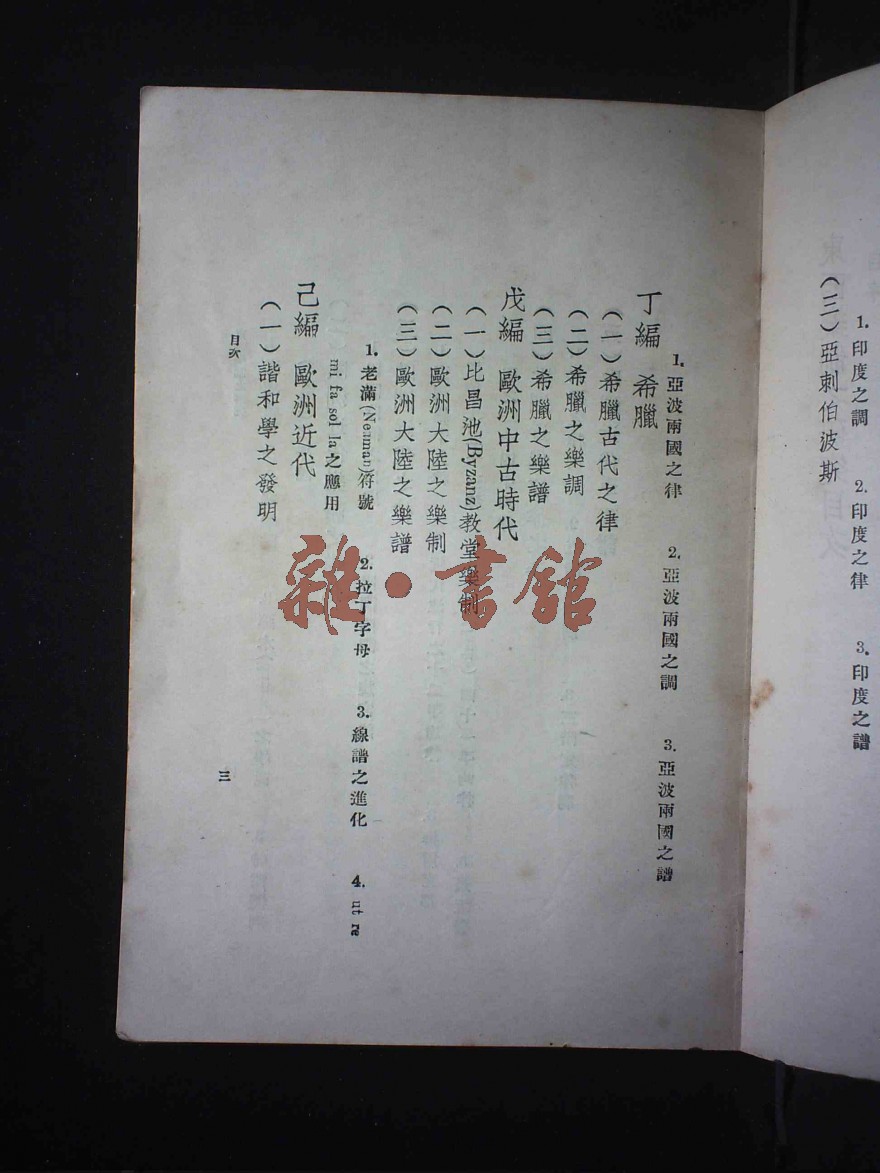 1. 印度之調　2. 印度之律　3. 印度之譜
（三）亞刺伯波斯
1. 亞波兩國之律　2. 亞波兩國之調　3. 亞波兩國之譜
丁編　希臘
（一）希臘古代之律
（二）希臘之樂調
（三）希臘之樂譜
戊編　歐洲中古時代
（一）比昌池(Byzanz)教堂樂制
（二）歐洲大陸之樂制
（三）歐洲大陸之樂譜
1. 老滿(Neuman)符號　2. 拉丁字母　3. 線譜之進化　4. ut re
mi fa sol la之應用
己編　歐洲近代
（一）諧和學之發明
目次
三
雜·書館